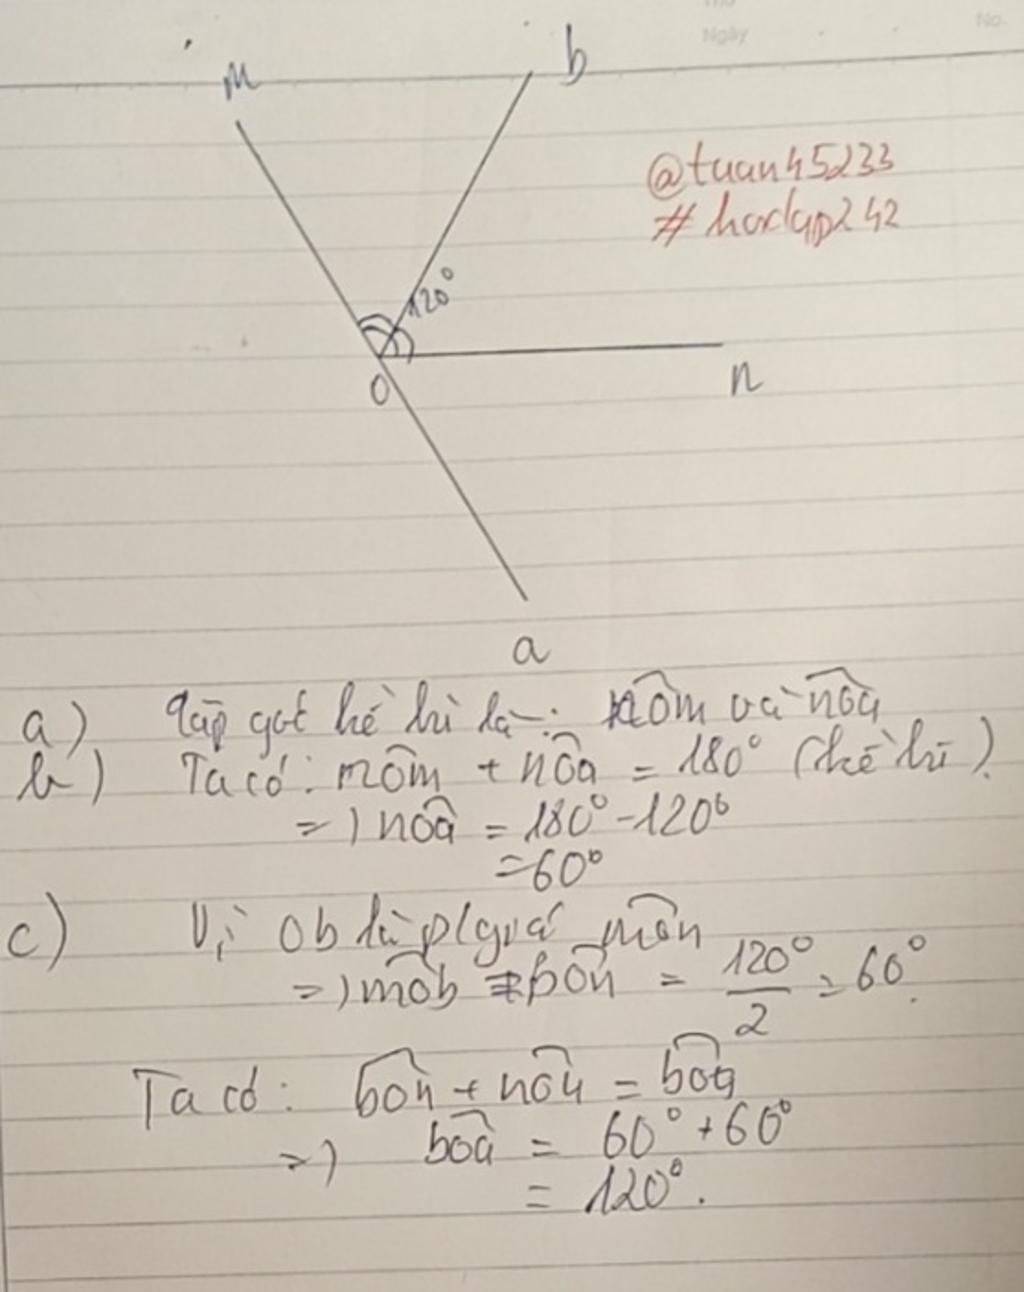 Ngày
No.
m
b
@tuan45233
#hoctap242
120°
O
n
a
a) Cặp góc kề bù là: nôm và nôa
b) Ta có: môm + nôa = 180° (kề bù).
=) nôa = 180° - 120°
= 60°
c) Vì Ob là p/giác môn
=) môb = bôn = 120°/2 = 60°.
Ta có: bôn + nôa = bôa
=) bôa = 60° + 60°
= 120°.